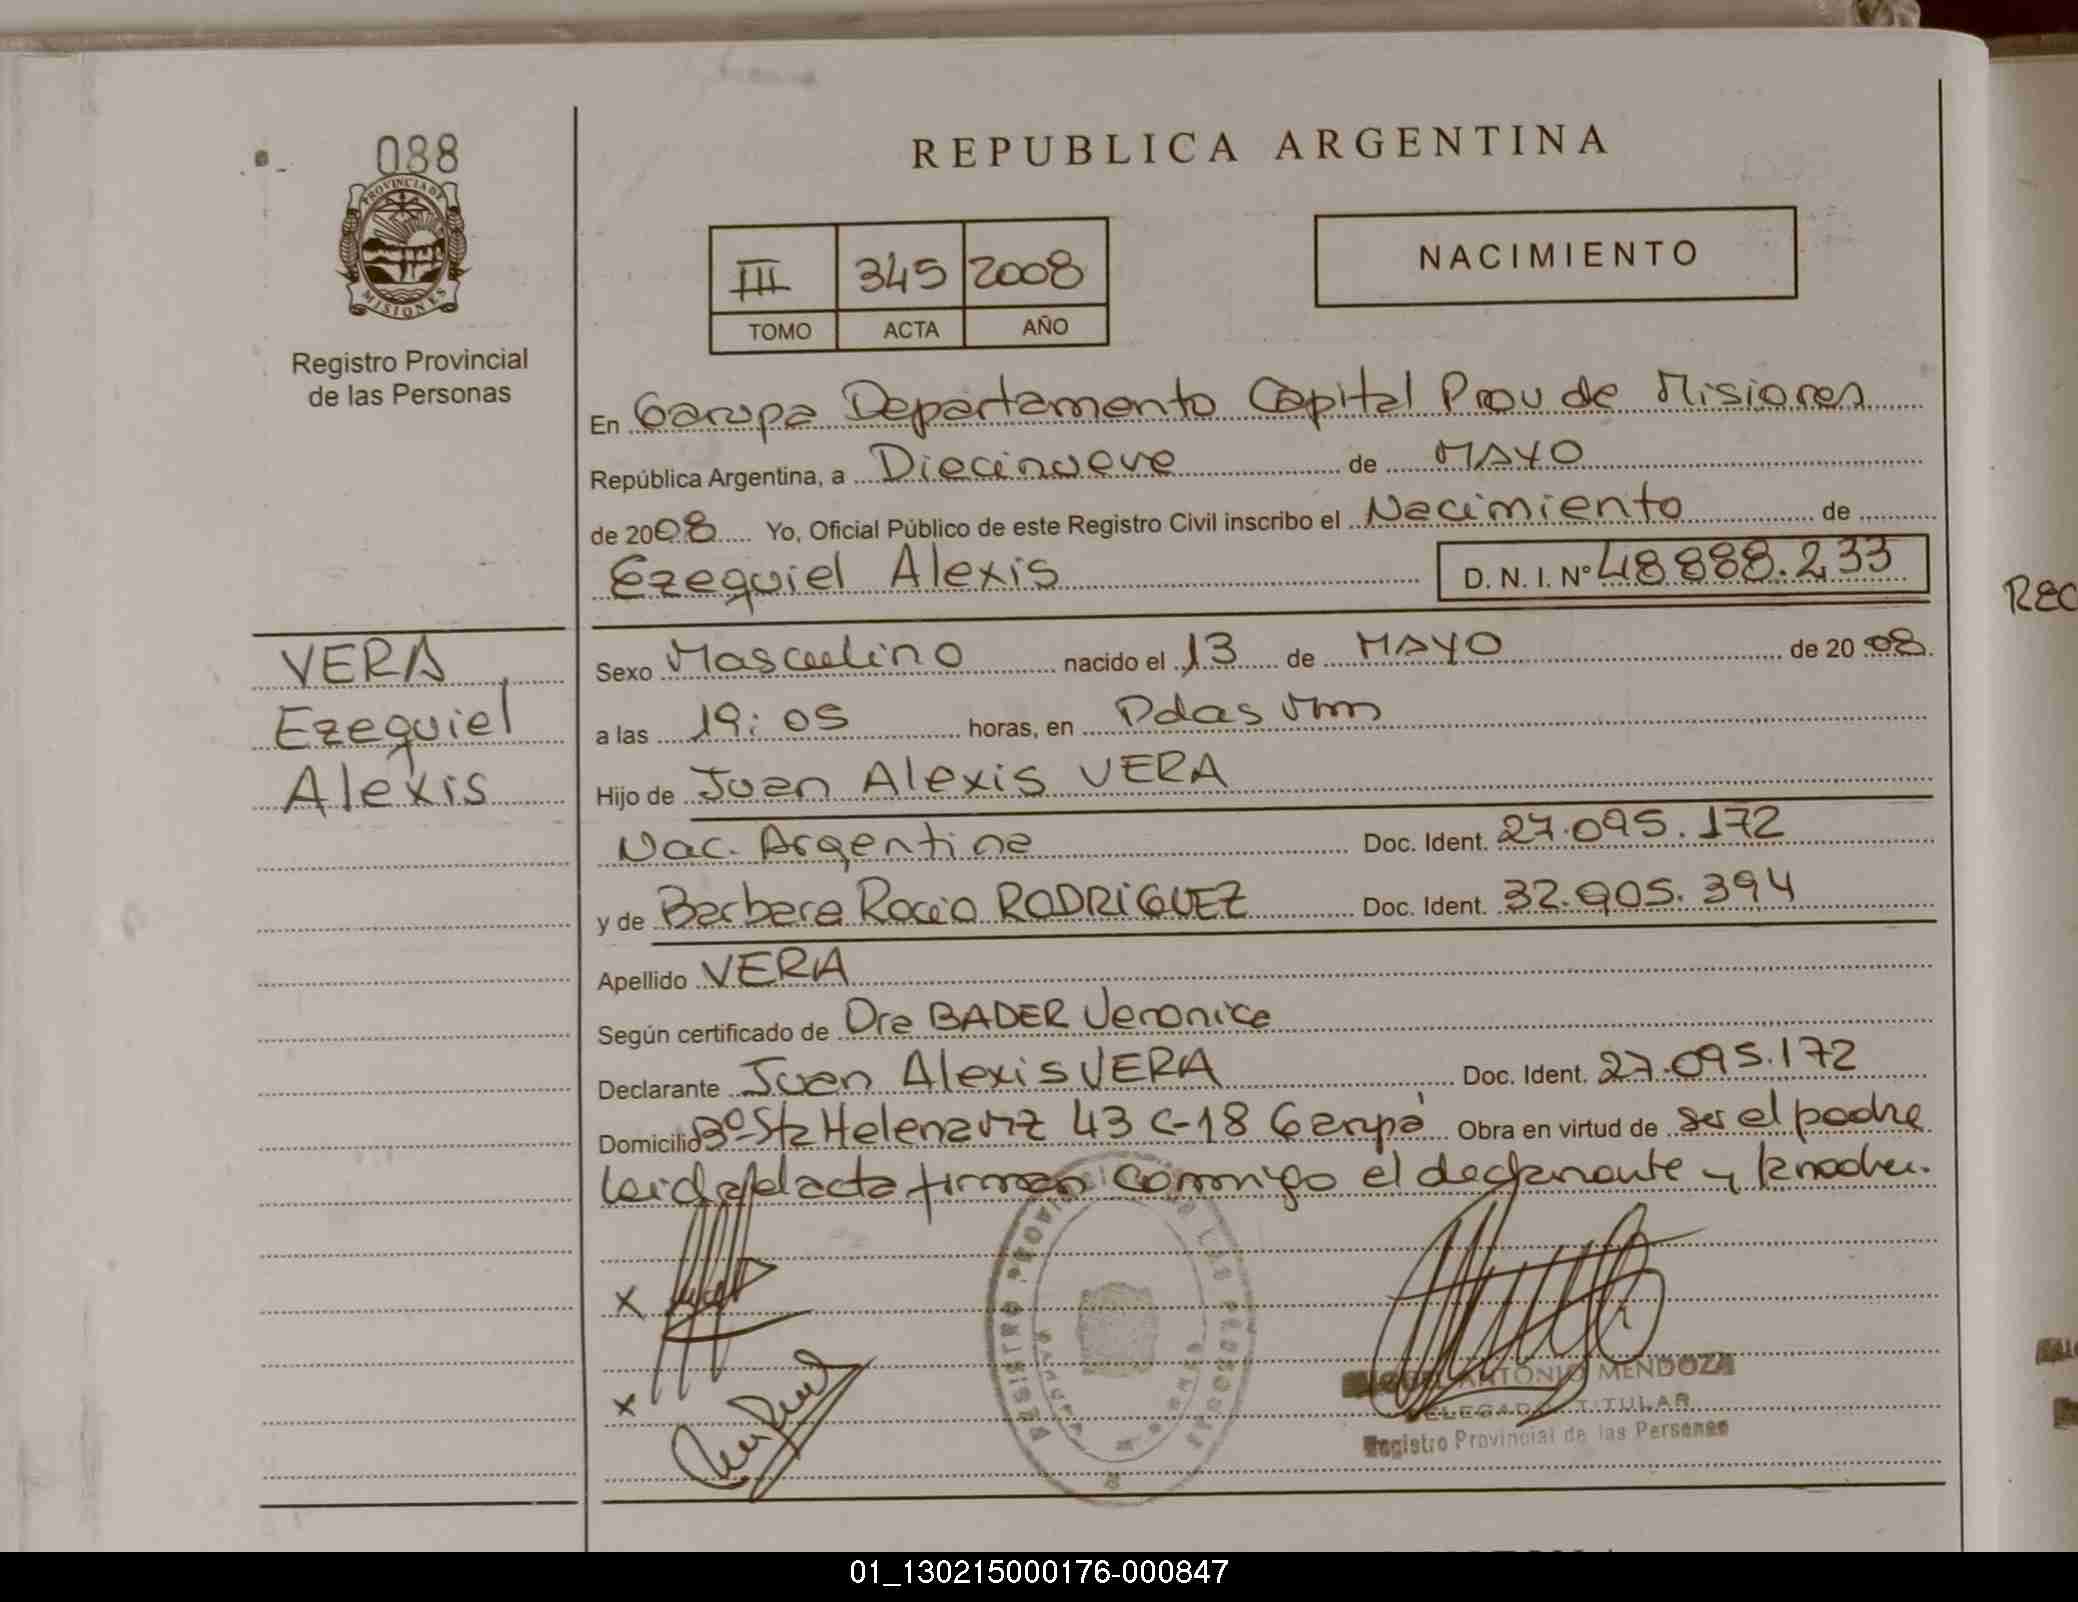 088
PROVINCIA DE
MISIONES
Registro Provincial
de las Personas
REPUBLICA ARGENTINA
III 345 2008
TOMO ACTA AÑO
NACIMIENTO
En Garupa Departamento Capital Prov de Misiones
República Argentina, a Diecinueve de MAYO
de 2008 Yo, Oficial Público de este Registro Civil inscribo el Nacimiento de
Ezequiel Alexis D. N. I. Nº 48.888.233
VERA
Ezequiel
Alexis
Sexo Masculino nacido el 13 de MAYO de 20 08
a las 19:05 horas, en Pdas Mnes
Hijo de Juan Alexis VERA
Nac. Argentina Doc. Ident. 27.095.172
y de Barbara Rocio RODRIGUEZ Doc. Ident. 32.905.394
Apellido VERA
Según certificado de Dra BADER Veronica
Declarante Juan Alexis VERA Doc. Ident. 27.095.172
Domicilio Bº Sta Helena Mz 43 C-18 Garupá Obra en virtud de ser el padre
Leida el acta firman conmigo el declarante y la madre.
X
X
REGISTRO PROVINCIAL DE LAS PERSONAS
ANTONIO MENDOZA
DELEGADO TITULAR
Registro Provincial de las Personas
REC
01_130215000176-000847